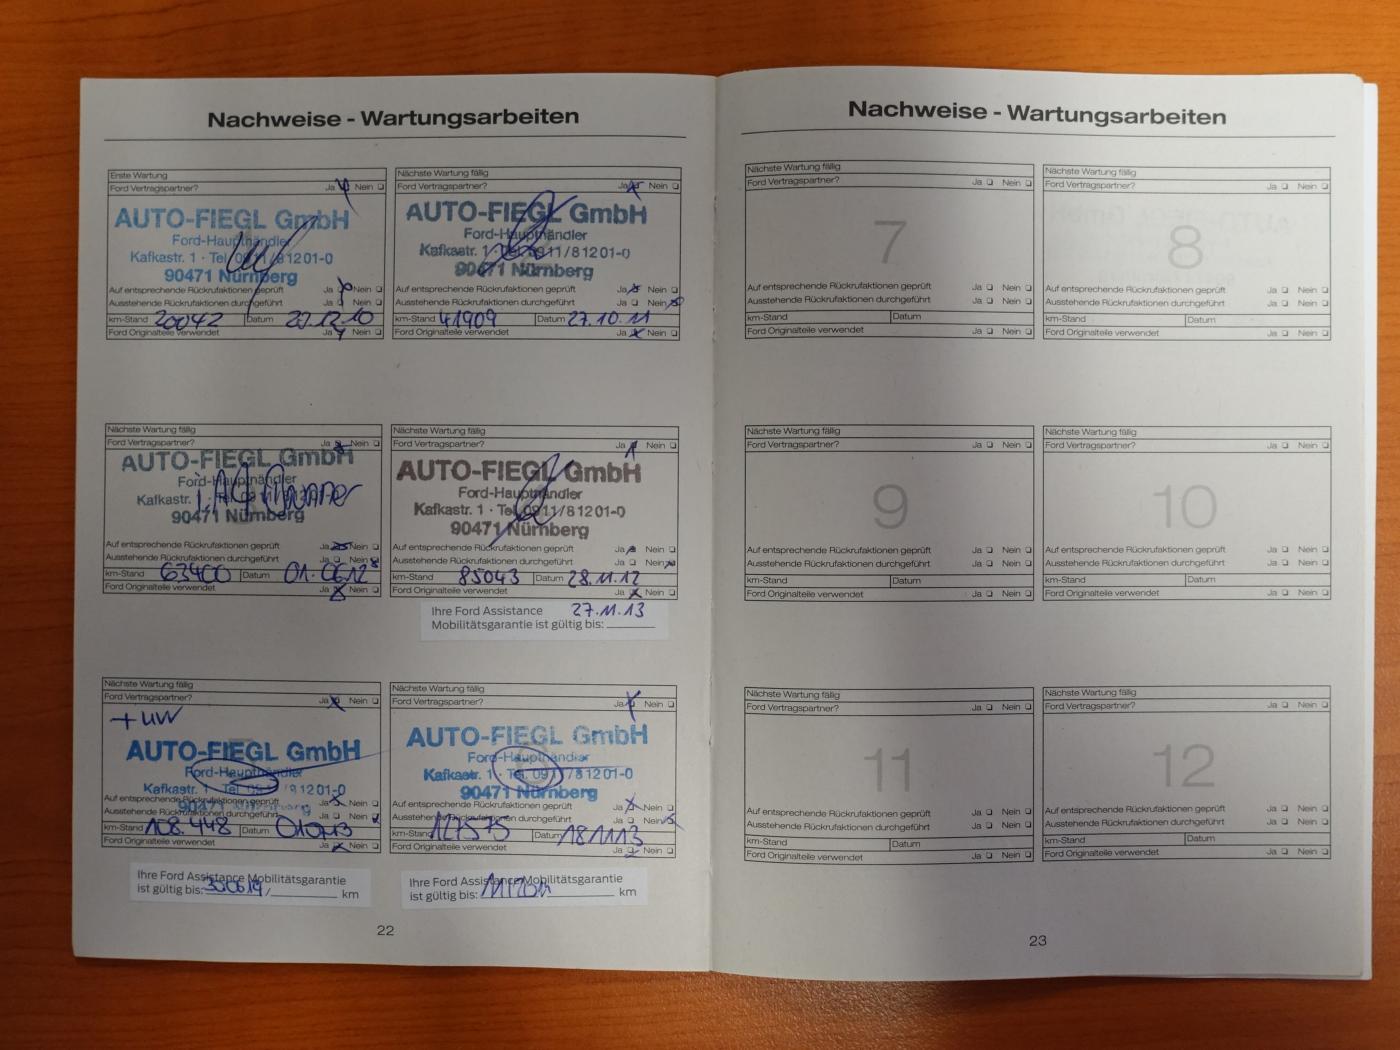 Nachweise - Wartungsarbeiten
Erste Wartung
Ford Vertragspartner? Ja Nein
AUTO-FIEGL GmbH
Ford-Haupthändler
Kafkastr. 1 · Tel. 0911/81201-0
90471 Nürnberg
Auf entsprechende Rückrufaktionen geprüft Ja Nein
Ausstehende Rückrufaktionen durchgeführt Ja Nein
km-Stand 20042 Datum 22.12.10
Ford Originalteile verwendet Ja Nein
Nächste Wartung fällig
Ford Vertragspartner? Ja Nein
AUTO-FIEGL GmbH
Ford-Haupthändler
Kafkastr. 1 · Tel. 0911/81201-0
90471 Nürnberg
Auf entsprechende Rückrufaktionen geprüft Ja Nein
Ausstehende Rückrufaktionen durchgeführt Ja Nein
km-Stand 41909 Datum 27.10.11
Ford Originalteile verwendet Ja Nein
Nächste Wartung fällig
Ford Vertragspartner? Ja Nein
AUTO-FIEGL GmbH
Ford-Haupthändler
Kafkastr. 1 · Tel. 0911/81201-0
90471 Nürnberg
Auf entsprechende Rückrufaktionen geprüft Ja Nein
Ausstehende Rückrufaktionen durchgeführt Ja Nein
km-Stand 63400 Datum 01.06.12
Ford Originalteile verwendet Ja Nein
Nächste Wartung fällig
Ford Vertragspartner? Ja Nein
AUTO-FIEGL GmbH
Ford-Haupthändler
Kafkastr. 1 · Tel. 0911/81201-0
90471 Nürnberg
Auf entsprechende Rückrufaktionen geprüft Ja Nein
Ausstehende Rückrufaktionen durchgeführt Ja Nein
km-Stand 85043 Datum 28.11.12
Ford Originalteile verwendet Ja Nein
Ihre Ford Assistance 27.11.13
Mobilitätsgarantie ist gültig bis:
Nächste Wartung fällig
Ford Vertragspartner? Ja Nein
+ UW
AUTO-FIEGL GmbH
Ford-Haupthändler
Kafkastr. 1 · Tel. 0911/81201-0
90471 Nürnberg
Auf entsprechende Rückrufaktionen geprüft Ja Nein
Ausstehende Rückrufaktionen durchgeführt Ja Nein
km-Stand 108.448 Datum
Ford Originalteile verwendet Ja Nein
Ihre Ford Assistance Mobilitätsgarantie
ist gültig bis: km
Nächste Wartung fällig
Ford Vertragspartner? Ja Nein
AUTO-FIEGL GmbH
Ford-Haupthändler
Kafkastr. 1 · Tel. 0911/81201-0
90471 Nürnberg
Auf entsprechende Rückrufaktionen geprüft Ja Nein
Ausstehende Rückrufaktionen durchgeführt Ja Nein
km-Stand 127575 Datum 181113
Ford Originalteile verwendet Ja Nein
Ihre Ford Assistance Mobilitätsgarantie
ist gültig bis: km
22
Nachweise - Wartungsarbeiten
Nächste Wartung fällig
Ford Vertragspartner? Ja Nein
7
Auf entsprechende Rückrufaktionen geprüft Ja Nein
Ausstehende Rückrufaktionen durchgeführt Ja Nein
km-Stand Datum
Ford Originalteile verwendet Ja Nein
Nächste Wartung fällig
Ford Vertragspartner? Ja Nein
8
Auf entsprechende Rückrufaktionen geprüft Ja Nein
Ausstehende Rückrufaktionen durchgeführt Ja Nein
km-Stand Datum
Ford Originalteile verwendet Ja Nein
Nächste Wartung fällig
Ford Vertragspartner? Ja Nein
9
Auf entsprechende Rückrufaktionen geprüft Ja Nein
Ausstehende Rückrufaktionen durchgeführt Ja Nein
km-Stand Datum
Ford Originalteile verwendet Ja Nein
Nächste Wartung fällig
Ford Vertragspartner? Ja Nein
10
Auf entsprechende Rückrufaktionen geprüft Ja Nein
Ausstehende Rückrufaktionen durchgeführt Ja Nein
km-Stand Datum
Ford Originalteile verwendet Ja Nein
Nächste Wartung fällig
Ford Vertragspartner? Ja Nein
11
Auf entsprechende Rückrufaktionen geprüft Ja Nein
Ausstehende Rückrufaktionen durchgeführt Ja Nein
km-Stand Datum
Ford Originalteile verwendet Ja Nein
Nächste Wartung fällig
Ford Vertragspartner? Ja Nein
12
Auf entsprechende Rückrufaktionen geprüft Ja Nein
Ausstehende Rückrufaktionen durchgeführt Ja Nein
km-Stand Datum
Ford Originalteile verwendet Ja Nein
23